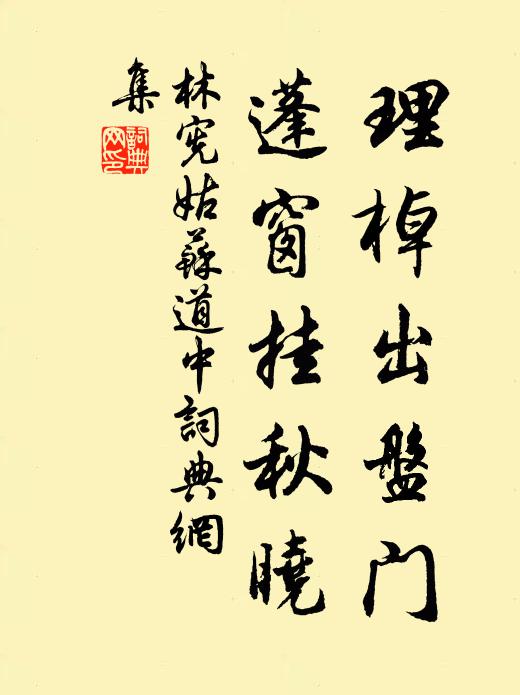 理棹出盤門
蓬窗挂秋曉
林宪姑蘇道中詞典網
集
詞典
网印